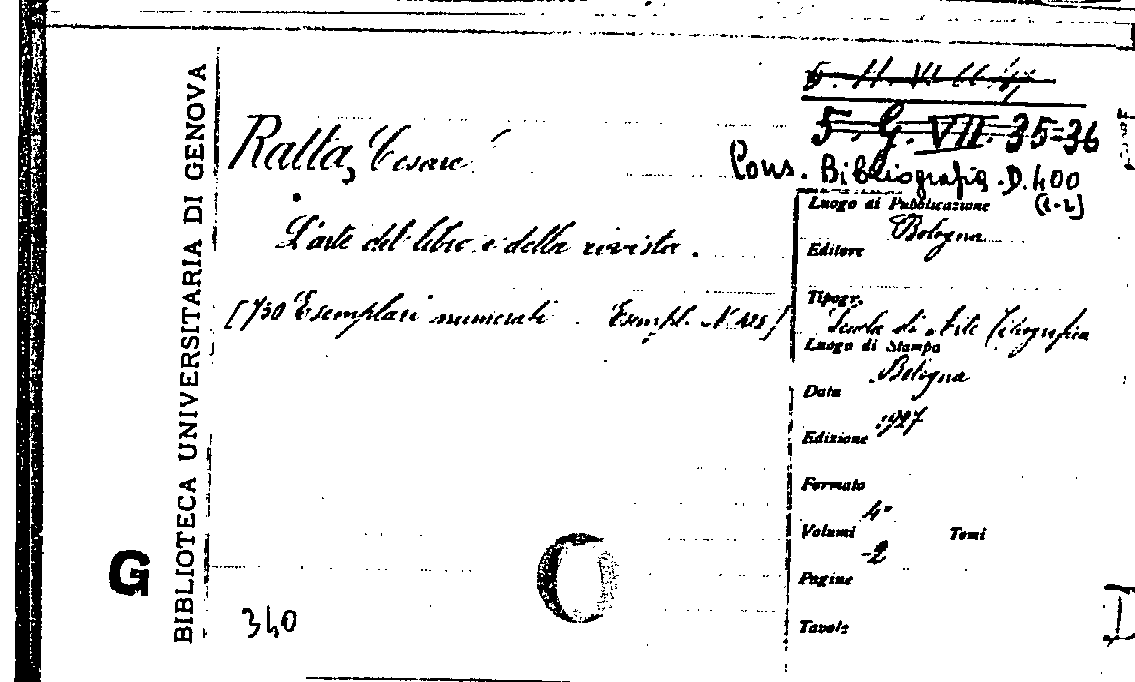 BIBLIOTECA UNIVERSITARIA DI GENOVA
G
5. G. VII. 35=36
Cons. Bibliografia. D. 400
(1-2)
Ratta, Cesare
L'arte del libro e della rivista.
[730 Esemplari numerati. Esempl. N. 125]
Luogo di Pubblicazione
Bologna
Editore
Tipogr.
Scuola di Arte Tipografica
Luogo di Stampa
Bologna
Data
1927
Edizione
Formato
4°
Volumi Tomi
-2
Pagine
Tavole
340